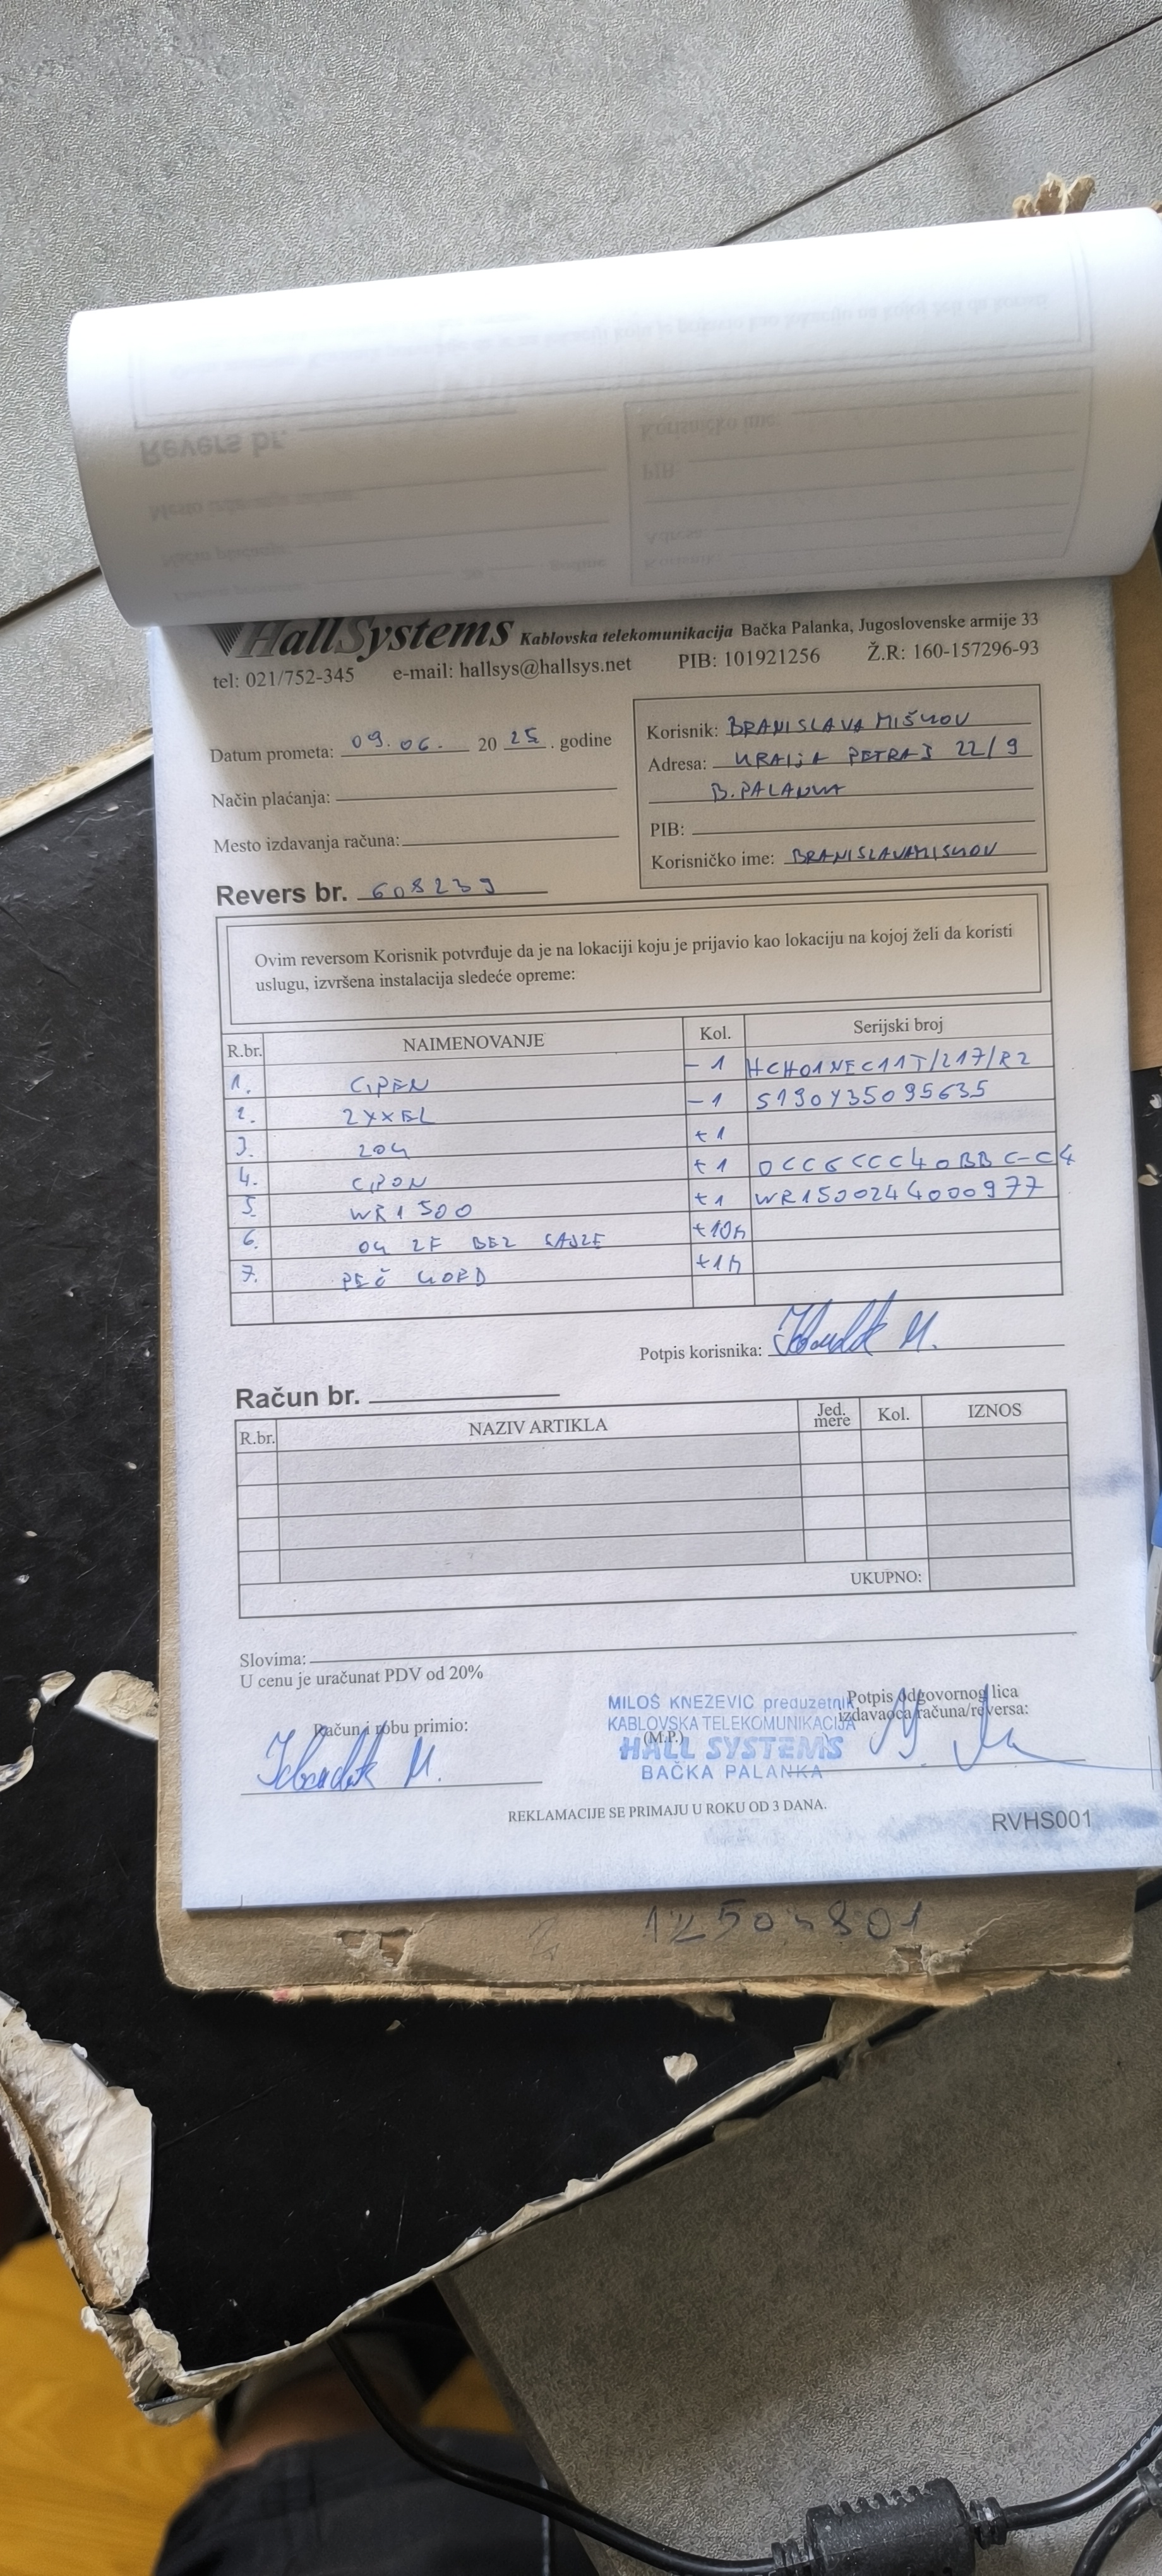 HallSystems Kablovska telekomunikacija Bačka Palanka, Jugoslovenske armije 33
tel: 021/752-345 e-mail: hallsys@hallsys.net PIB: 101921256 Ž.R: 160-157296-93
Datum prometa: 09.06. 20 25. godine
Način plaćanja:
Mesto izdavanja računa:
Revers br. 608239
Korisnik: BRANISLAVA MIŠKOV
Adresa: KRALJA PETRA I 22/9
B.PALANKA
PIB:
Korisničko ime: BRANISLAVAMISKOV
Ovim reversom Korisnik potvrđuje da je na lokaciji koju je prijavio kao lokaciju na kojoj želi da koristi
uslugu, izvršena instalacija sledeće opreme:
R.br. NAIMENOVANJE Kol. Serijski broj
1. -1 HCH01NEC11T/217/R2
2. ZYXEL -1 S190Y35095635
3. +1
4. +1 0CC6CCC40BBC-C4
5. WR1500 +1 WR1500244000977
6. BEZ SAJLE +10m
7. PEČ KORD +1m
Potpis korisnika:
Račun br.
R.br. NAZIV ARTIKLA Jed. mere Kol. IZNOS
UKUPNO:
Slovima:
U cenu je uračunat PDV od 20%
Račun i robu primio:
MILOŠ KNEZEVIC preduzetnik
KABLOVSKA TELEKOMUNIKACIJA
(M.P.)
HALL SYSTEMS
BAČKA PALANKA
Potpis odgovornog lica
izdavaoca računa/reversa:
REKLAMACIJE SE PRIMAJU U ROKU OD 3 DANA.
RVHS001